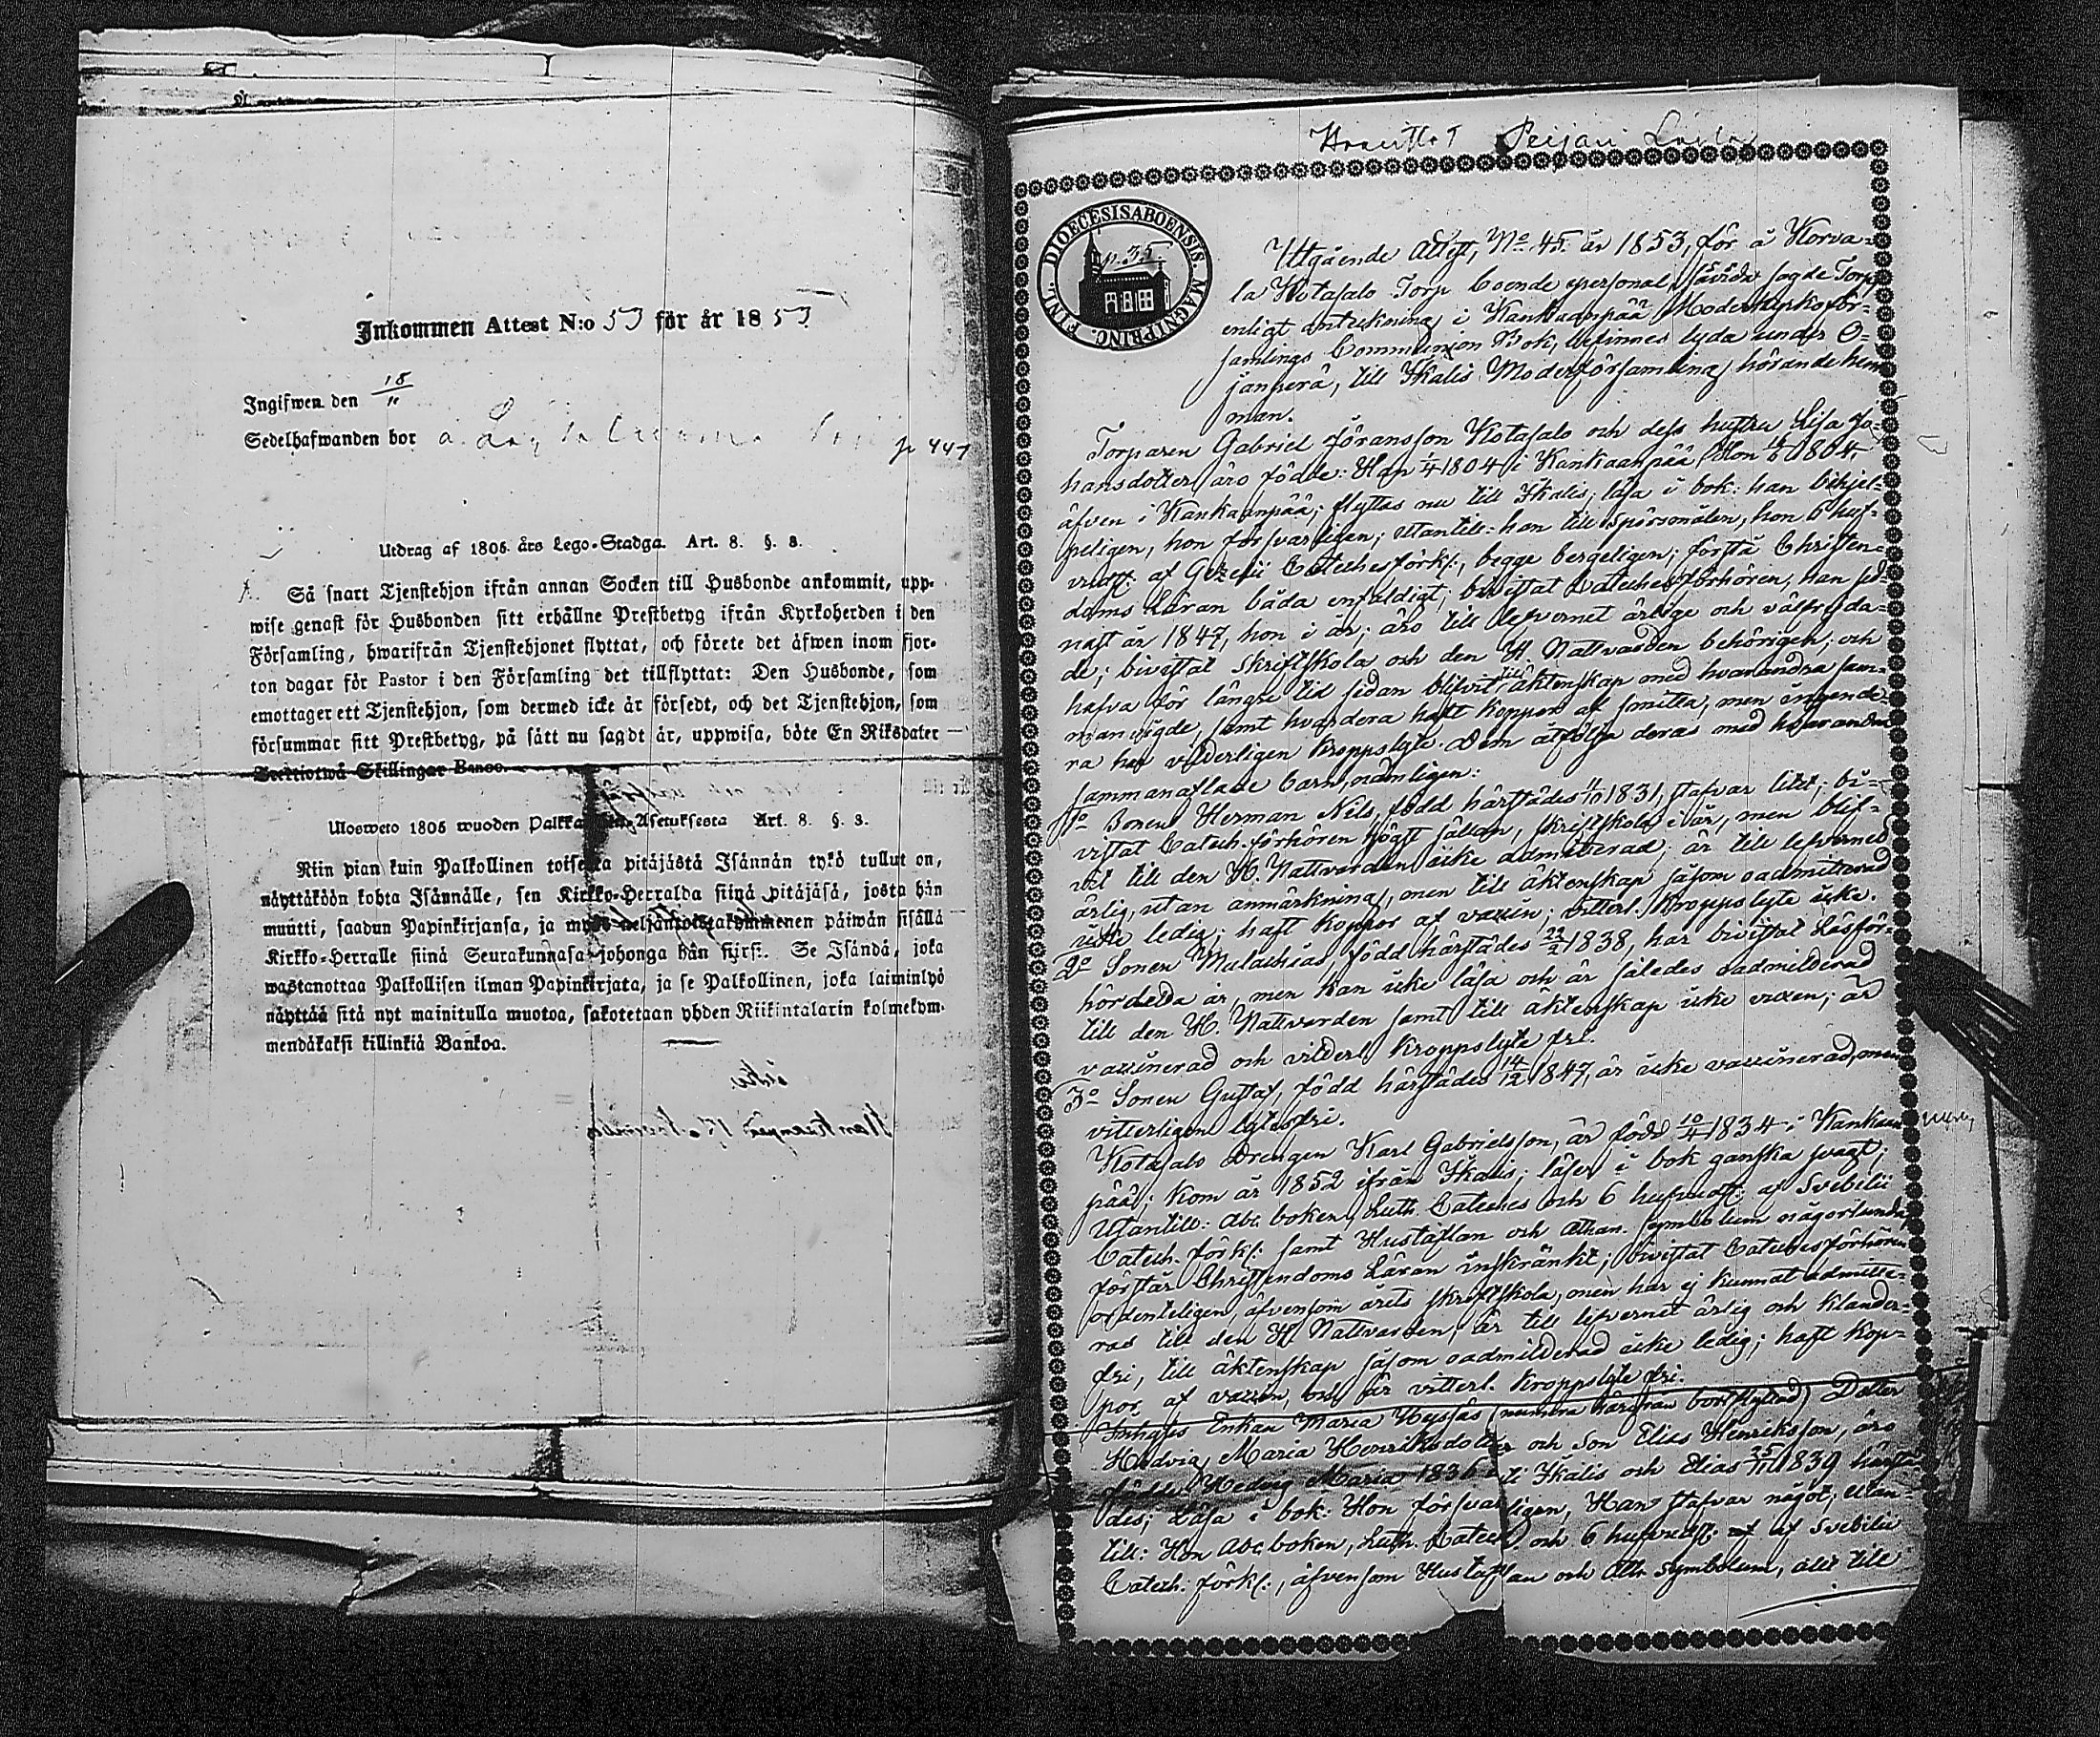 Inkommen Attest N:o 53 för år 1853
Ingifwen den 18/11
Sedelhafwanden bor å
p 447
Utdrag af 1805 års Lego-Stadga. Art. 8. §. 8.
Så snart Tjenstehjon ifrån annan Socken till Husbonde ankommit, upp-
wise genast för Husbonden sitt erhållne Prestbetyg ifrån Kyrkoherden i den
Församling, hwarifrån Tjenstehjonet flyttat, och förete det äfwen inom fjor-
ton dagar för Pastor i den Församling det tillflyttat: Den Husbonde, som
emottager ett Tjenstehjon, som dermed icke är försedt, och det Tjenstehjon, som
försummar sitt Prestbetyg, på sätt nu sagdt är, uppwisa, böte En Riksdaler
Trettiotwå Skillingar Banco.
Ulosweto 1805 wuoden Asetuksesta Art. 8. §. 8.
Niin pian kuin Palkollinen toisesta pitäjästä Isännän tykö tullut on,
näyttäköön kohta Isännälle, sen Kirkko-Herralda siinä pitäjäsä, josta hän
muutti, saadun Papinkirjansa, ja myös neljäntoistakymmenen päiwän sisällä
Kirkko-Herralle siinä Seurakunnasa johonga hän siirsi. Se Isändä, joka
wastanottaa Palkollisen ilman Papinkirjata, ja se Palkollinen, joka laiminlyö
näyttää sitä nyt mainitulla muotoa, sakotetaan yhden Riikintalarin kolmekym-
mendäkaksi killinkiä Bankoa.
DIOECESIS ABOENSIS. MAGNI PRINC. FINL.
p. 35.
Utgående Attest, No 45. år 1853, för å Korva-
la Kotasalo Torp boende personal, såvida sagde Torp
enligt anteckning i Kankaanpää Moderkyrkoför-
samlings Communion Bok, befinnes lyda under O-
janperä, till Ikalis Moderförsamling hörande hem-
man.
Torparen Gabriel Göransson Kotasalo och dess hustru Lisa Jo-
hansdotter äro födde: Han 1/4 1804 i Kankaanpää, Hon 1804
äfven i Kankaanpää; flyttas nu till Ikalis; läsa i bok: han behjel-
peligen, hon försvarligen; utantill: han till spörsmålen, hon 6 huf-
vudst. af Gezelii Catechesförkl:, begge bergeligen; förstå Christen-
doms Läran båda enfaldigt; bivistat Catechesförhören, han sed-
nast år 1847, hon i år; äro till lefvernet ärlige och välfrejda-
de; bivistat Skriftskola och den H. Nattvarden behörigen; och
hafva för längre tid sedan blifvit till äktenskap med hvarandra sam-
manvigde, samt hvardera haft koppor af smitta, men ingende-
ra har vitterligen kroppslyte. Dem åtfölja deras med hvarandra
sammanaflade barn, nämligen:
1o Sonen Herman Nils, född härstädes 11/10 1831, stafvar litet; bi-
vistat Catech. förhören högst sällan, skriftskola i år, men blif-
vit till den H. Nattvarden icke admitterad; är till lefvernet
ärlig, utan anmärkning, men till äktenskap såsom oadmitterad
icke ledig; haft koppor af vaccin; vitterl. kroppslyte icke.
2o Sonen Malachias, född härstädes 22/2 1838, har bivistat Läsför-
hör detta år, men kan icke läsa och är således oadmitterad
till den H. Nattvarden samt till äktenskap icke vuxen; är
vaccinerad och vitterl. kroppslyte fri.
3o Sonen Gustaf, född härstädes 14/12 1847, är icke vaccinerad, men
vitterligen lytesfri.
Kotasalo Drengen Karl Gabrielsson, är född 10/4 1834 i Kankaan-
pää; kom år 1852 ifrån Ikalis; läser i bok ganska svagt;
Utantill: Abc boken, Luth. Cateches och 6 hufvudst: af Svebilii
Catech. förkl: samt Hustaflan och Athan. symbolum någorlunda;
förstår Christendoms Läran inskränkt; bivistat Catechesförhören
ordenteligen, äfvensom årets skriftskola, men har ej kunnat admitte-
ras till den H. Nattvarden; är till lefvernet ärlig och klander-
fri, till äktenskap såsom oadmitterad icke ledig; haft kop-
por af vaccin, och är vitterl. kroppslyte fri.
Inhyses Enkan Maria (numera härifrån bortflyttad) Dotter
Hedvig Maria Henriksdotter och Son Elias Henriksson, äro
födde: Hedvig Maria 1836 i Ikalis och Elias 25/11 1839 härstä-
des; Läsa i bok: Hon försvarligen, Han stafvar något; utan-
till: Hon Abc boken, Luth. Catech. och 6 hufvudst: af Svebilii
Catech: förkl:, äfvensom Hustaflan och Ath. symbolum, allt till